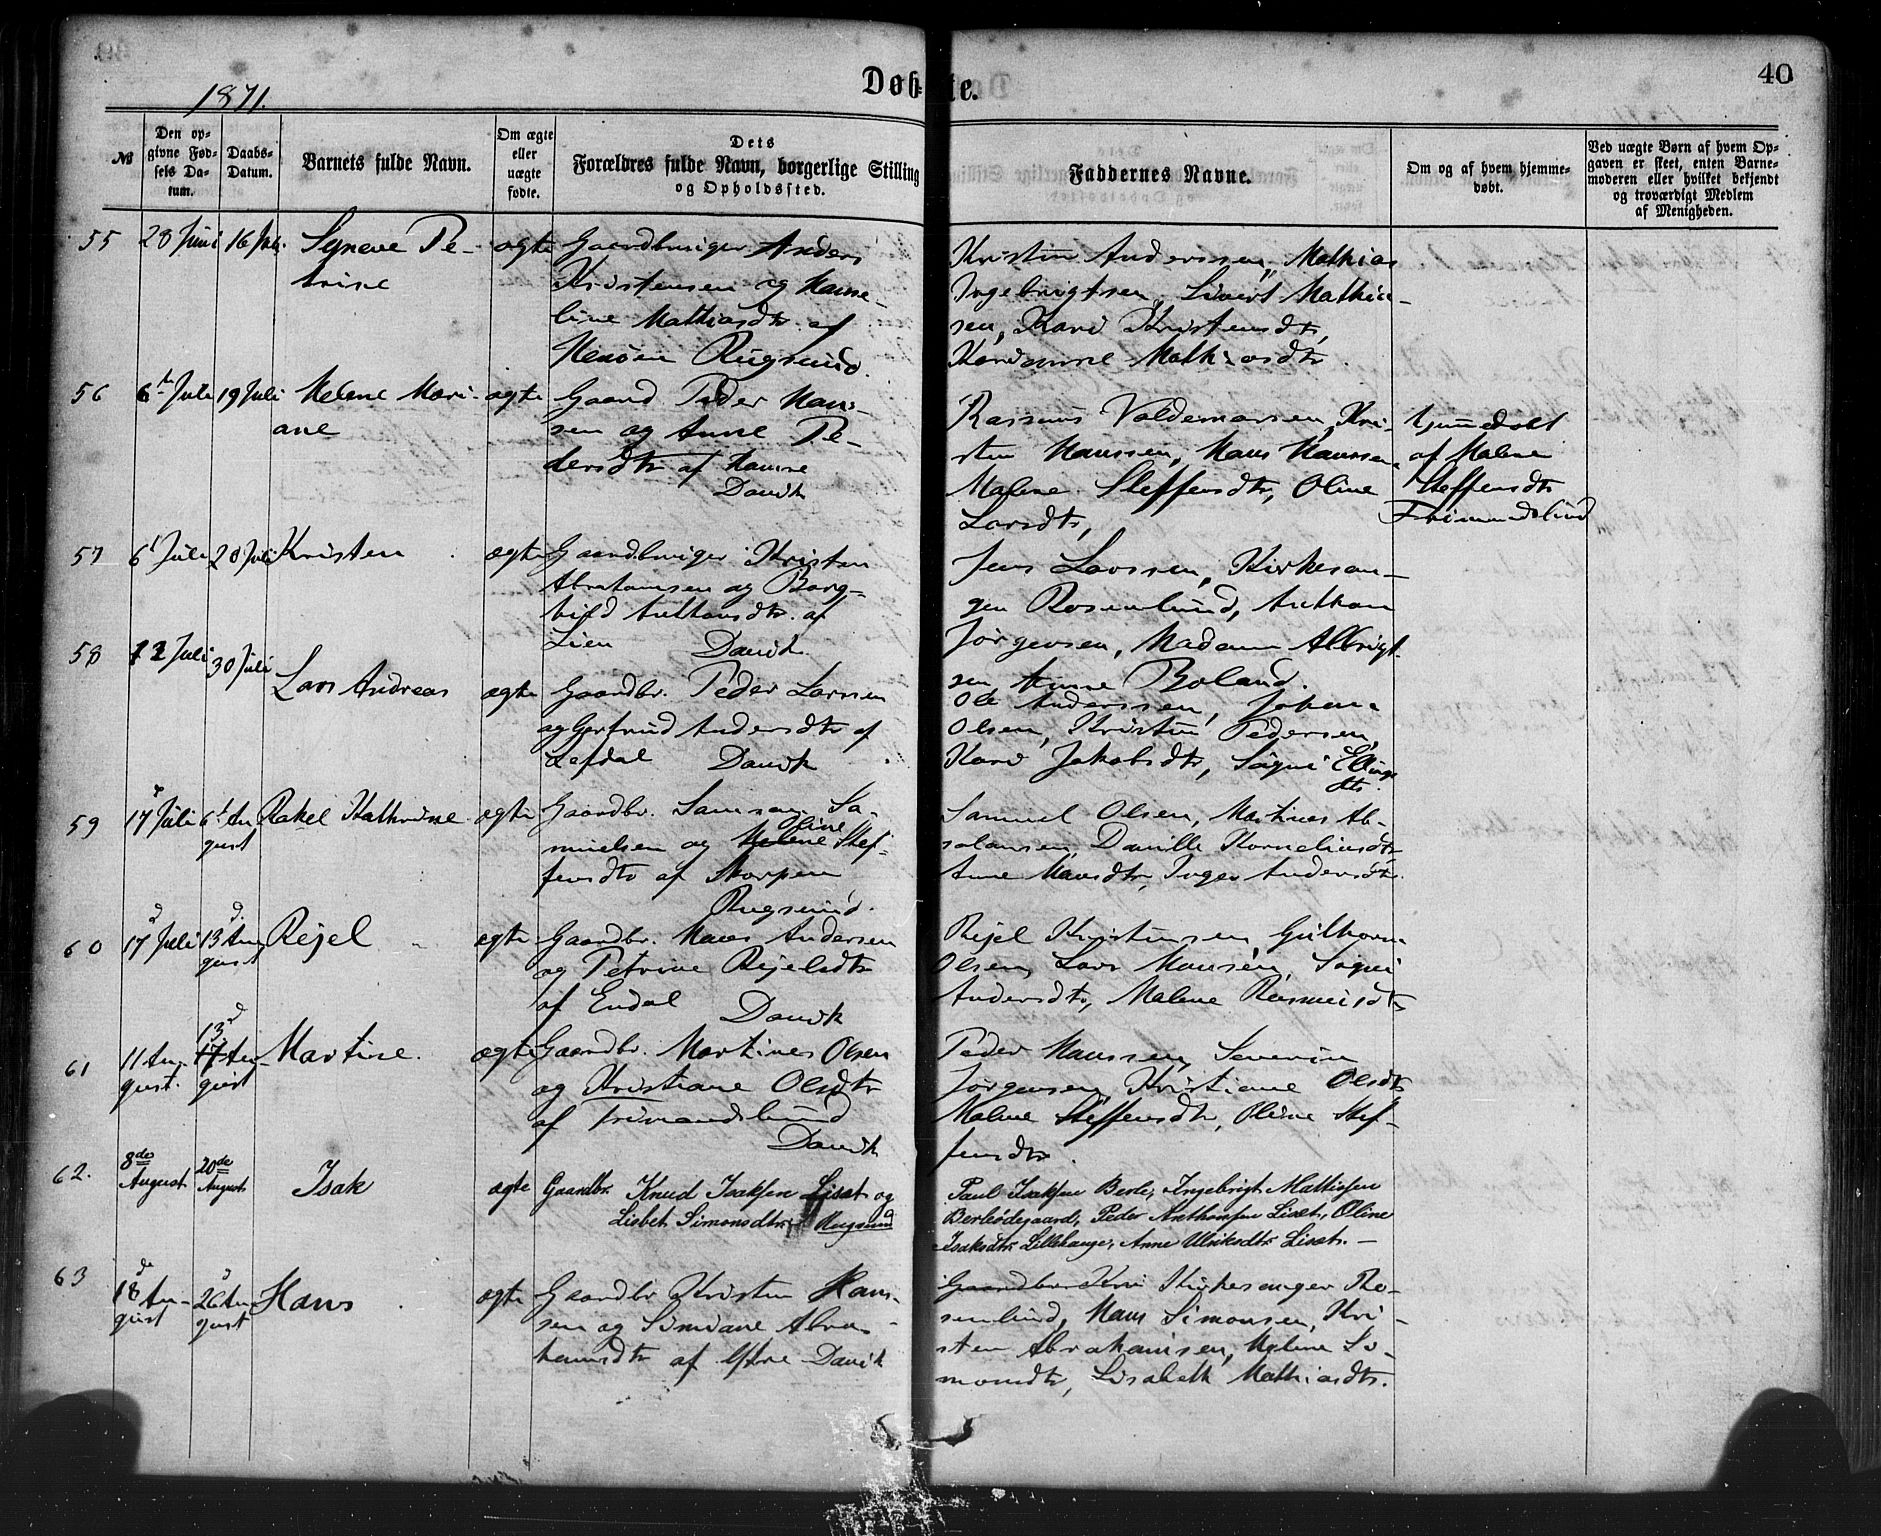 40
1871.
Døbte.
№
Den opgivne Fødsels Datum.
Daabs-Datum.
Barnets fulde Navn.
Om ægte eller uægte fødte.
Dets Forældres fulde Navn, borgerlige Stilling og Opholdssted.
Faddernes Navne.
Om og af hvem hjemmedøbt.
Ved uægte Børn af hvem Opgaven er skeet, enten Barnemoderen eller hvilket bekjendt og troværdigt Medlem af Menigheden.
55 28 Juni 16 Juli Syneve Pe-
trine
ægte Gaardbruger Anders
Kristensen og Hanse-
line Mathiasdtr. af
Henøen Rugsund.
Kristen Anderssen, Mathias
Ingebrigtsen, Sivert Mathia-
sen, Kari Kristensdtr,
Mathiasdtr.
56 6 Juli 19 Juli Helene Mari-
ane
ægte Gaard Peder Han-
sen og Anne Pe-
dersdtr af Hamre
Davik
Rasmus Valdemarsen, Kri-
sten Hanssen, Hans Hanssen,
Malene Steffensdtr, Oline
Larsdtr,
hjemmedøbt
af Malene
Steffensdtr
Frimandslund
57 6 Juli 20 Juli Kristen
ægte Gaardbruger Kristen
Abrahamsen og Borg-
hild Anthonsdtr. af
Lien Davik.
Jens Larssen, Kirkesan-
ger Rosenlund, Anthon
Jørgensen, Madam Albrigt-
sen Anne Boland.
58 12 Juli 30 Juli Lars Andreas
ægte Gaardbr. Peder Larssen
og Gertrud Andersdtr af
Lefdal Davik
Ole Anderssen, Johan
Olsen, Kristen Pedersen,
Kari Jakobsdtr, Søgni Ellings
dtr.
59 17 Juli 6 Au
gust
Rakel Kathrine
ægte Gaardbr. Samson Sa-
muelsen og Malene Oline Stef-
fensdtr af Skorpen
Rugsund.
Samuel Olsen, Martines Ab-
salonsen, Danille Korneliusdtr
Anne Hansdtr, Inger Andersdtr.
60 17 Juli 13 Au
gust
Rejel
ægte Gaardbr. Hans Andersen
og Petrine Rejelsdtr
af Endal Davik
Rejel Kristensen, Guthorm
Olsen, Lars Hansen, Søgni
Andersdtr, Malene Rasmusdtr
61 11 Au
gust.
13
17 Au-
gust
Martine.
ægte Gaardbr. Martines Olsen
og Kristiane Olsdtr
af Frimandslund
Davik
Peder Hanssen, Severin
Jørgensen, Kristiane Olsdtr
Malene Steffensdtr, Oline Stef-
fensdtr.
62. 8de August 20de August
Isak
ægte Gaardbr. Knud Isaksen Liset og
Lisbet Simonsdtr, Rugsund
Paul Isaksen Berle, Ingebrigt Mattisen
Berleødegaard, Peder Anthonsen Liset, Oline
Isaksdtr Lillehauge, Anne Ulriksdtr Liset. —
63 18 Au-
gust
26 Au
gust
Hans
ægte Gaardbr Kristen Han-
sen og Simiane Abra-
hamsdtr af Ytre Davik
Gaardbr Kri Kirkesanger Ro-
senlund, Hans Simonsen, Kri-
sten Abrahamsen, Malene Si-
monsdtr, Lisabeth Mathiasdtr.